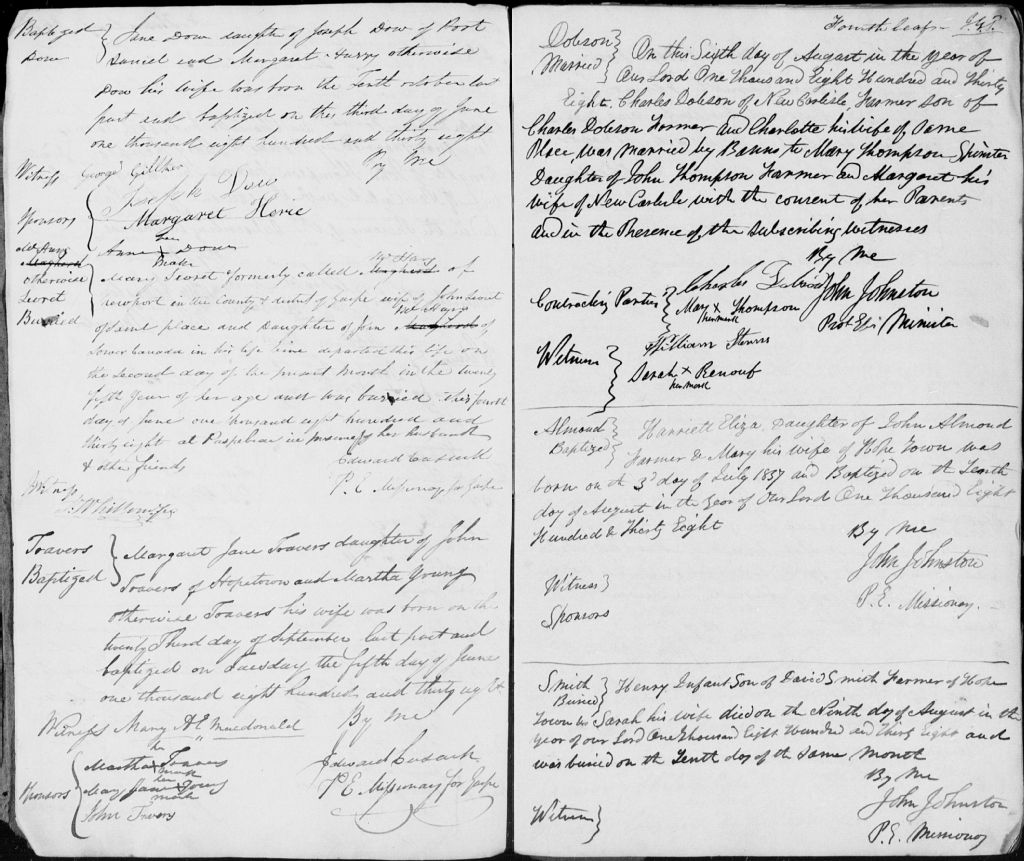 Baptized
Dow
Jane Dow daughter of Joseph Dow of Port
Daniel and Margaret Harry otherwise
Dow his wife was born the Tenth october last
past and baptized on this third day of June
one thousand eight hundred and thirty eight
By me
Witness
George
Joseph Dow
Sponsors
Margaret Herie
her
Anne x Dow
mark
Mc Harg
otherwise
Secret
Buried
Mary Secret formerly called Mc Harg of
newport in the County & district of Gaspe wife of John Secret
of Saint place and Daughter of Jean Mc Harg of
Lower Canada in his life time departed this life on
the second day of the present Month in the twenty
fifth Year of her age and was buried this fourth
day of June one thousand eight hundred and
thirty eight at Paspebiac in presence of her husband
& other friends
Edward Cusack
P. E Missionary for Gaspe
Witness
Travers
Baptized
Margaret Jane Travers daughter of John
Travers of Hopetown and Martha Young
otherwise Travers his wife was born on the
twenty Third day of September last past and
baptized on Tuesday the fifth day of June
one thousand eight hundred and thirty eight
By me
Witness Mary Macdonald
Edward Cusack
P E Missionary for Gaspe
Sponsors
Martha Travers
mark
her
Mary Jane Young
mark
John Travers
Fourth leaf
Dobson
Married
On this Sixth day of August in the year of
Our Lord One thousand Eight Hundred and Thirty
Eight, Charles Dobson of New Carlisle, Farmer Son of
Charles Dobson Farmer and Charlotte his wife of Same
Place, was married by Banns to Mary Thompson Spinster
Daughter of John Thompson Farmer and Margaret his
wife of New Carlisle with the consent of her Parents
and in the Presence of the Subscribing witnesses
By Me
Contracting Parties
Charles
Mary x Thompson
her mark
John Johnston
Prot Epi Minister
Witness
William
Sarah x Renouf
her mark
Almond
Baptized
Harriett Eliza Daughter of John Almond
Farmer & Mary his wife of Hope Town was
born on the 3d day of July 1837 and Baptized on the Tenth
day of August in the Year of Our Lord One Thousand Eight
Hundred & Thirty Eight
By Me
John Johnston
P. E. Missionary.
Witness
Sponsors
Smith
Buried
Henry Infant Son of David Smith Farmer of Hope
Town & Sarah his wife died on the Ninth day of August in the
Year of our Lord One Thousand Eight Hundred and Thirty Eight and
was buried on the Tenth day of the Same Month
By Me
John Johnston
P. E. Missionary
Witness